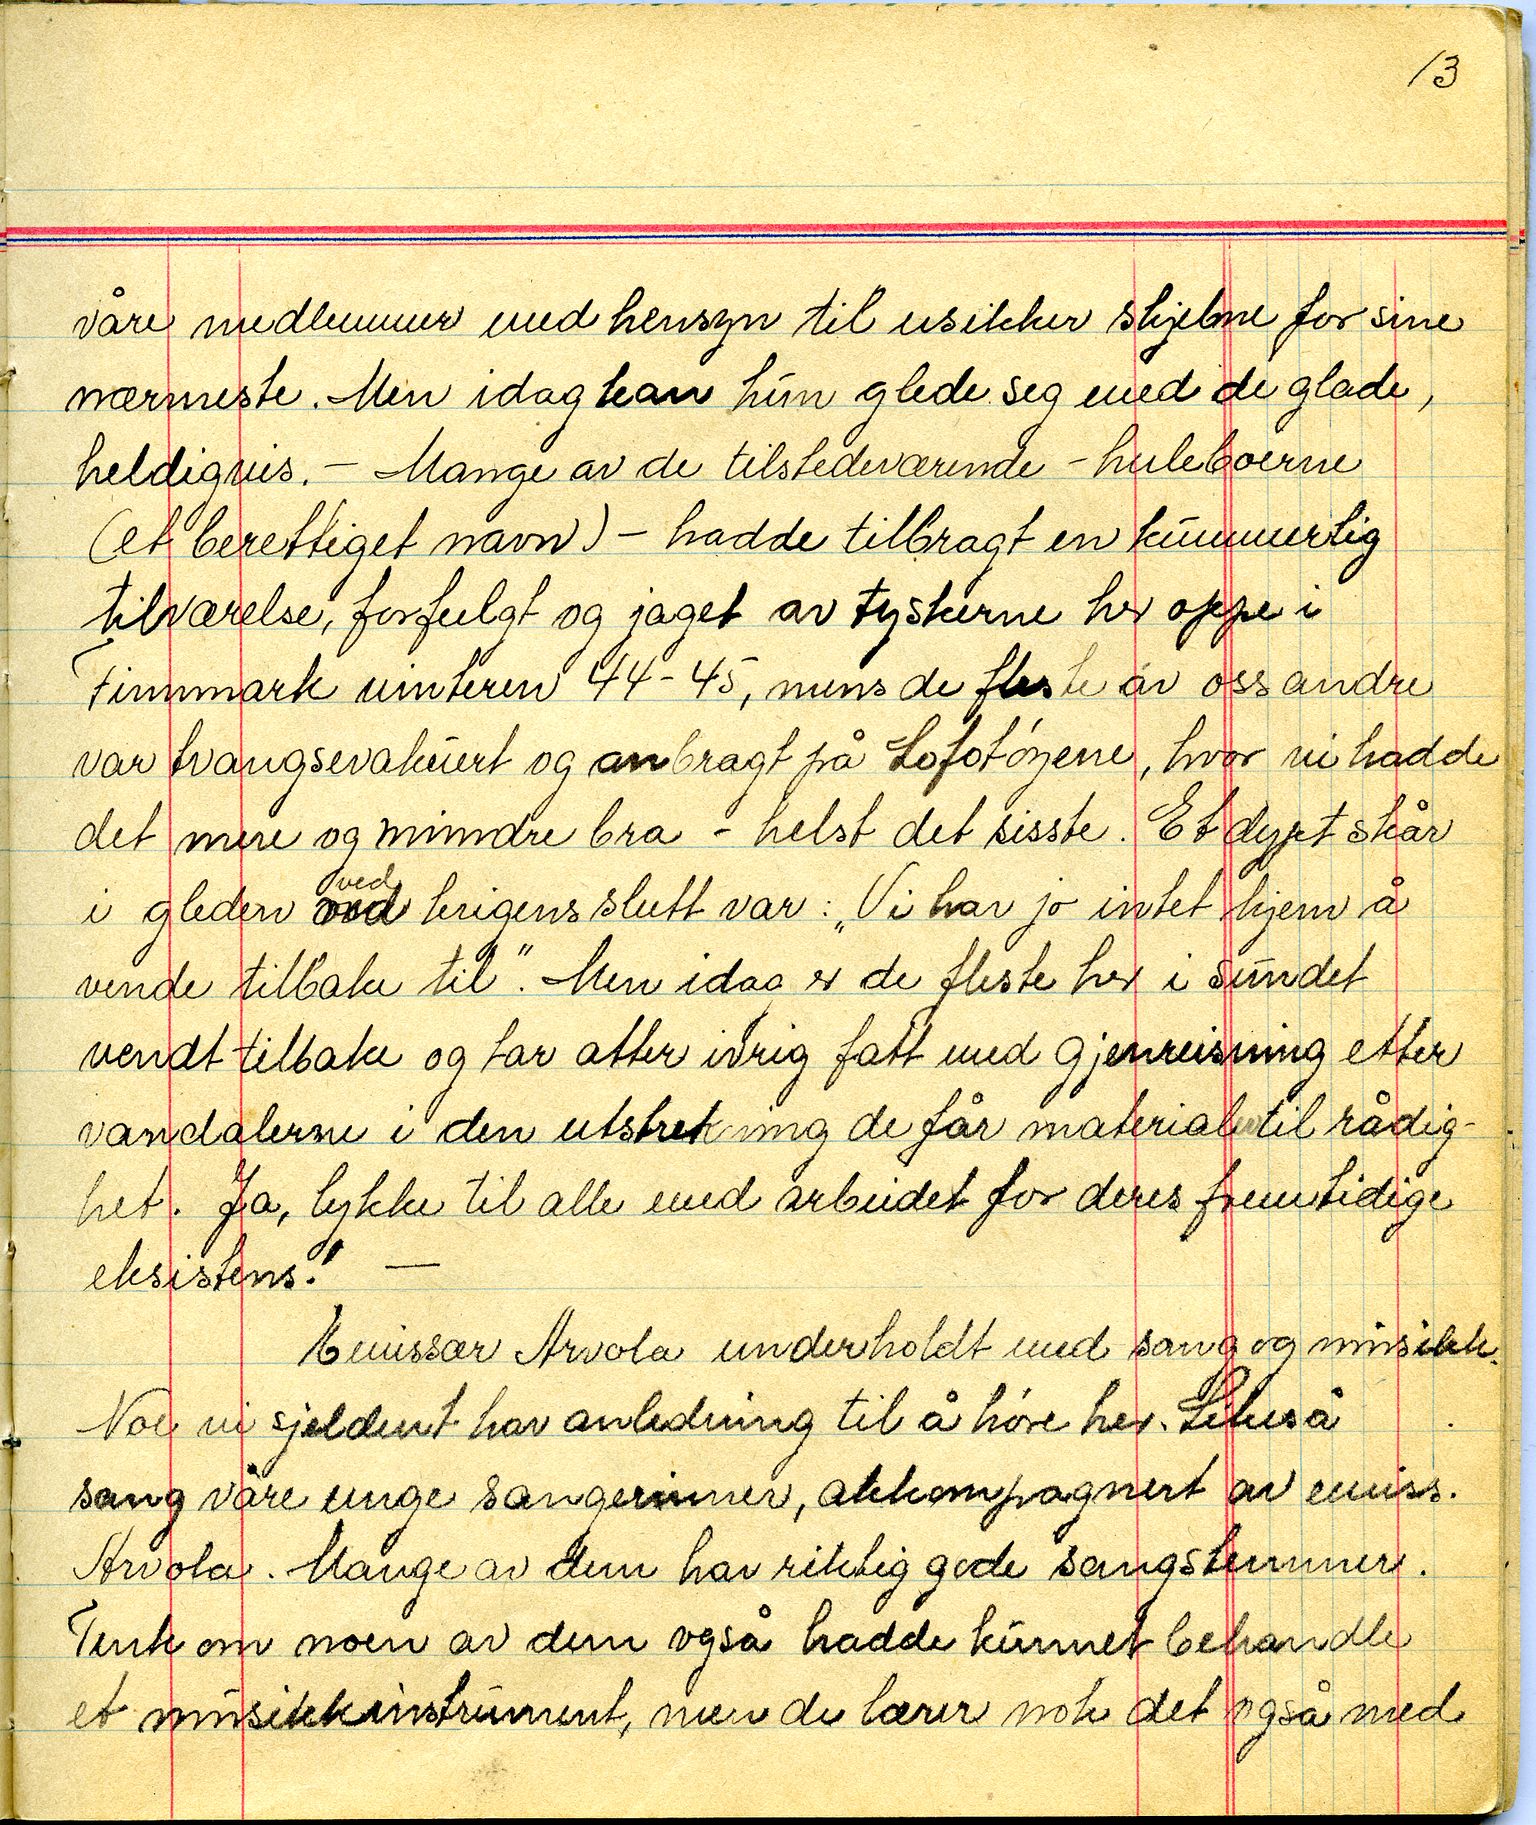 13
våre medlemmer med hensyn til usikker skjebne for sine
nærmeste. Men idag kan hun glede seg med de glade,
heldigvis. – Mange av de tilstedeværende – huleboerne
(et berettiget navn) – hadde tilbragt en kummerlig
tilværelse, forfulgt og jaget av tyskerne her oppe i
Finnmark vinteren 44-45, mens de fleste av oss andre
var tvangsevakuert og anbragt på Lofotöyene, hvor vi hadde
det mere og mindre bra – helst det sisste. Et dypt skår
i gleden ved krigens slutt var: „Vi har jo intet hjem å
vende tilbake til”. Men idag er de fleste her i sundet
vendt tilbake og tar atter ivrig fatt med gjenreisning etter
vandalerne i den utstrekning de får materialer til rådig-
het. Ja, lykke til alle med arbeidet for deres fremtidige
eksistens! —
Emissær Arvola underholdt med sang og musikk.
Noe vi sjeldent har anledning til å höre her. Likeså
sang våre unge sangerinner, akkompagnert av emiss.
Arvola. Mange av dem har riktig gode sangstemmer.
Tenk om noen av dem også hadde kunnet behandle
et musikkinstrument, men de lærer nok det også med